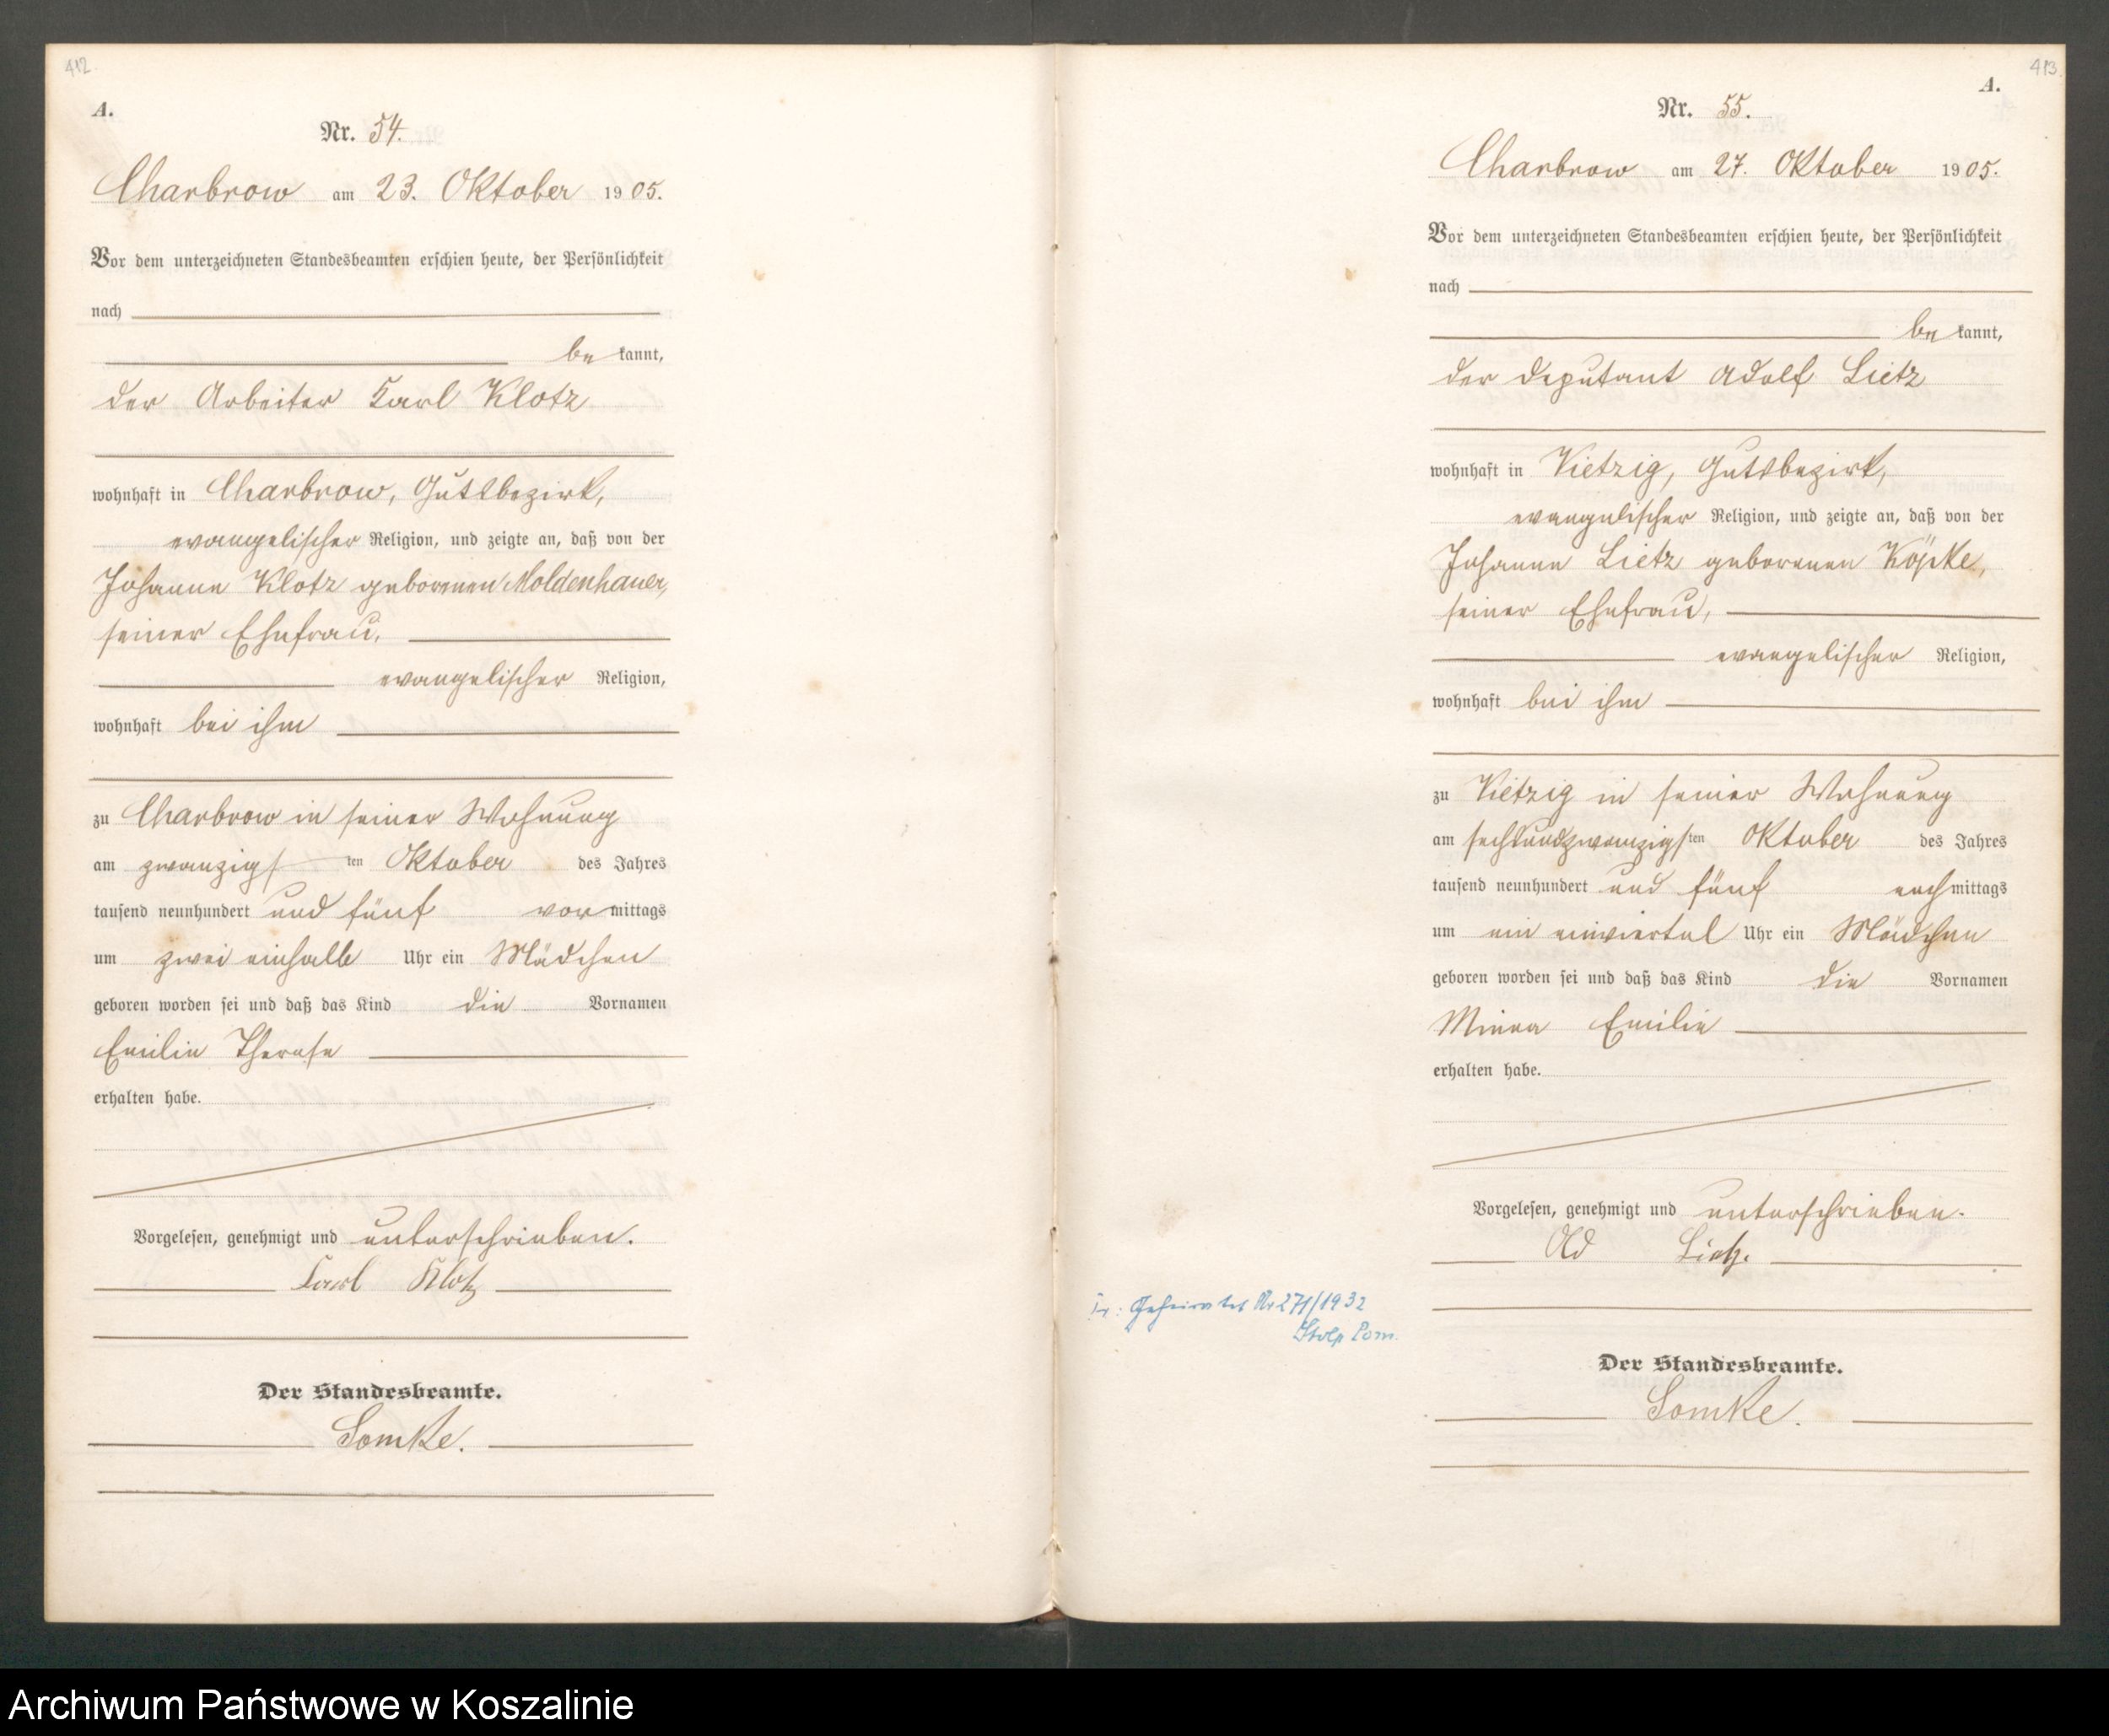 412.
A.
Nr. 54.
Charbrow am 23. Oktober 1905.
Vor dem unterzeichneten Standesbeamten erschien heute, der Persönlichkeit
nach
be kannt,
der Arbeiter Karl Klotz
wohnhaft in Charbrow, Gutsbezirk,
evangelischer Religion, und zeigte an, daß von der
Johanne Klotz geborenen Moldenhauer,
seiner Ehefrau,
evangelischer Religion,
wohnhaft bei ihm
zu Charbrow in seiner Wohnung
am zwanzigsten Oktober des Jahres
tausend neunhundert und fünf vormittags
um zwei einhalb Uhr ein Mädchen
geboren worden sei und daß das Kind die Vornamen
Emilie Therese
erhalten habe.
Vorgelesen, genehmigt und unterschrieben.
Karl Klotz
Der Standesbeamte.
Somke.
413.
A.
Nr. 55.
Charbrow am 27. Oktober 1905.
Vor dem unterzeichneten Standesbeamten erschien heute, der Persönlichkeit
nach
be kannt,
der Deputant Adolf Lietz
wohnhaft in Vietzig, Gutsbezirk,
evangelischer Religion, und zeigte an, daß von der
Johanne Lietz geborenen Köpke,
seiner Ehefrau,
evangelischer Religion,
wohnhaft bei ihm
zu Vietzig in seiner Wohnung
am sechsundzwanzigsten Oktober des Jahres
tausend neunhundert und fünf nachmittags
um ein einviertel Uhr ein Mädchen
geboren worden sei und daß das Kind die Vornamen
Minna Emilie
erhalten habe.
Vorgelesen, genehmigt und unterschrieben.
Ad Lietz.
Geheiratet Nr 271/1932
Stolp Pom.
Der Standesbeamte.
Somke.
Archiwum Państwowe w Koszalinie